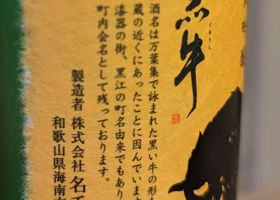 黒牛
くろうし
酒名は万葉集で詠まれた黒い牛の形
蔵の近くにあったことに因んでいます
漆器の街、黒江の町名由来でもあり
町内会名として残っております。
製造者 株式会社 名手
和歌山県海南市